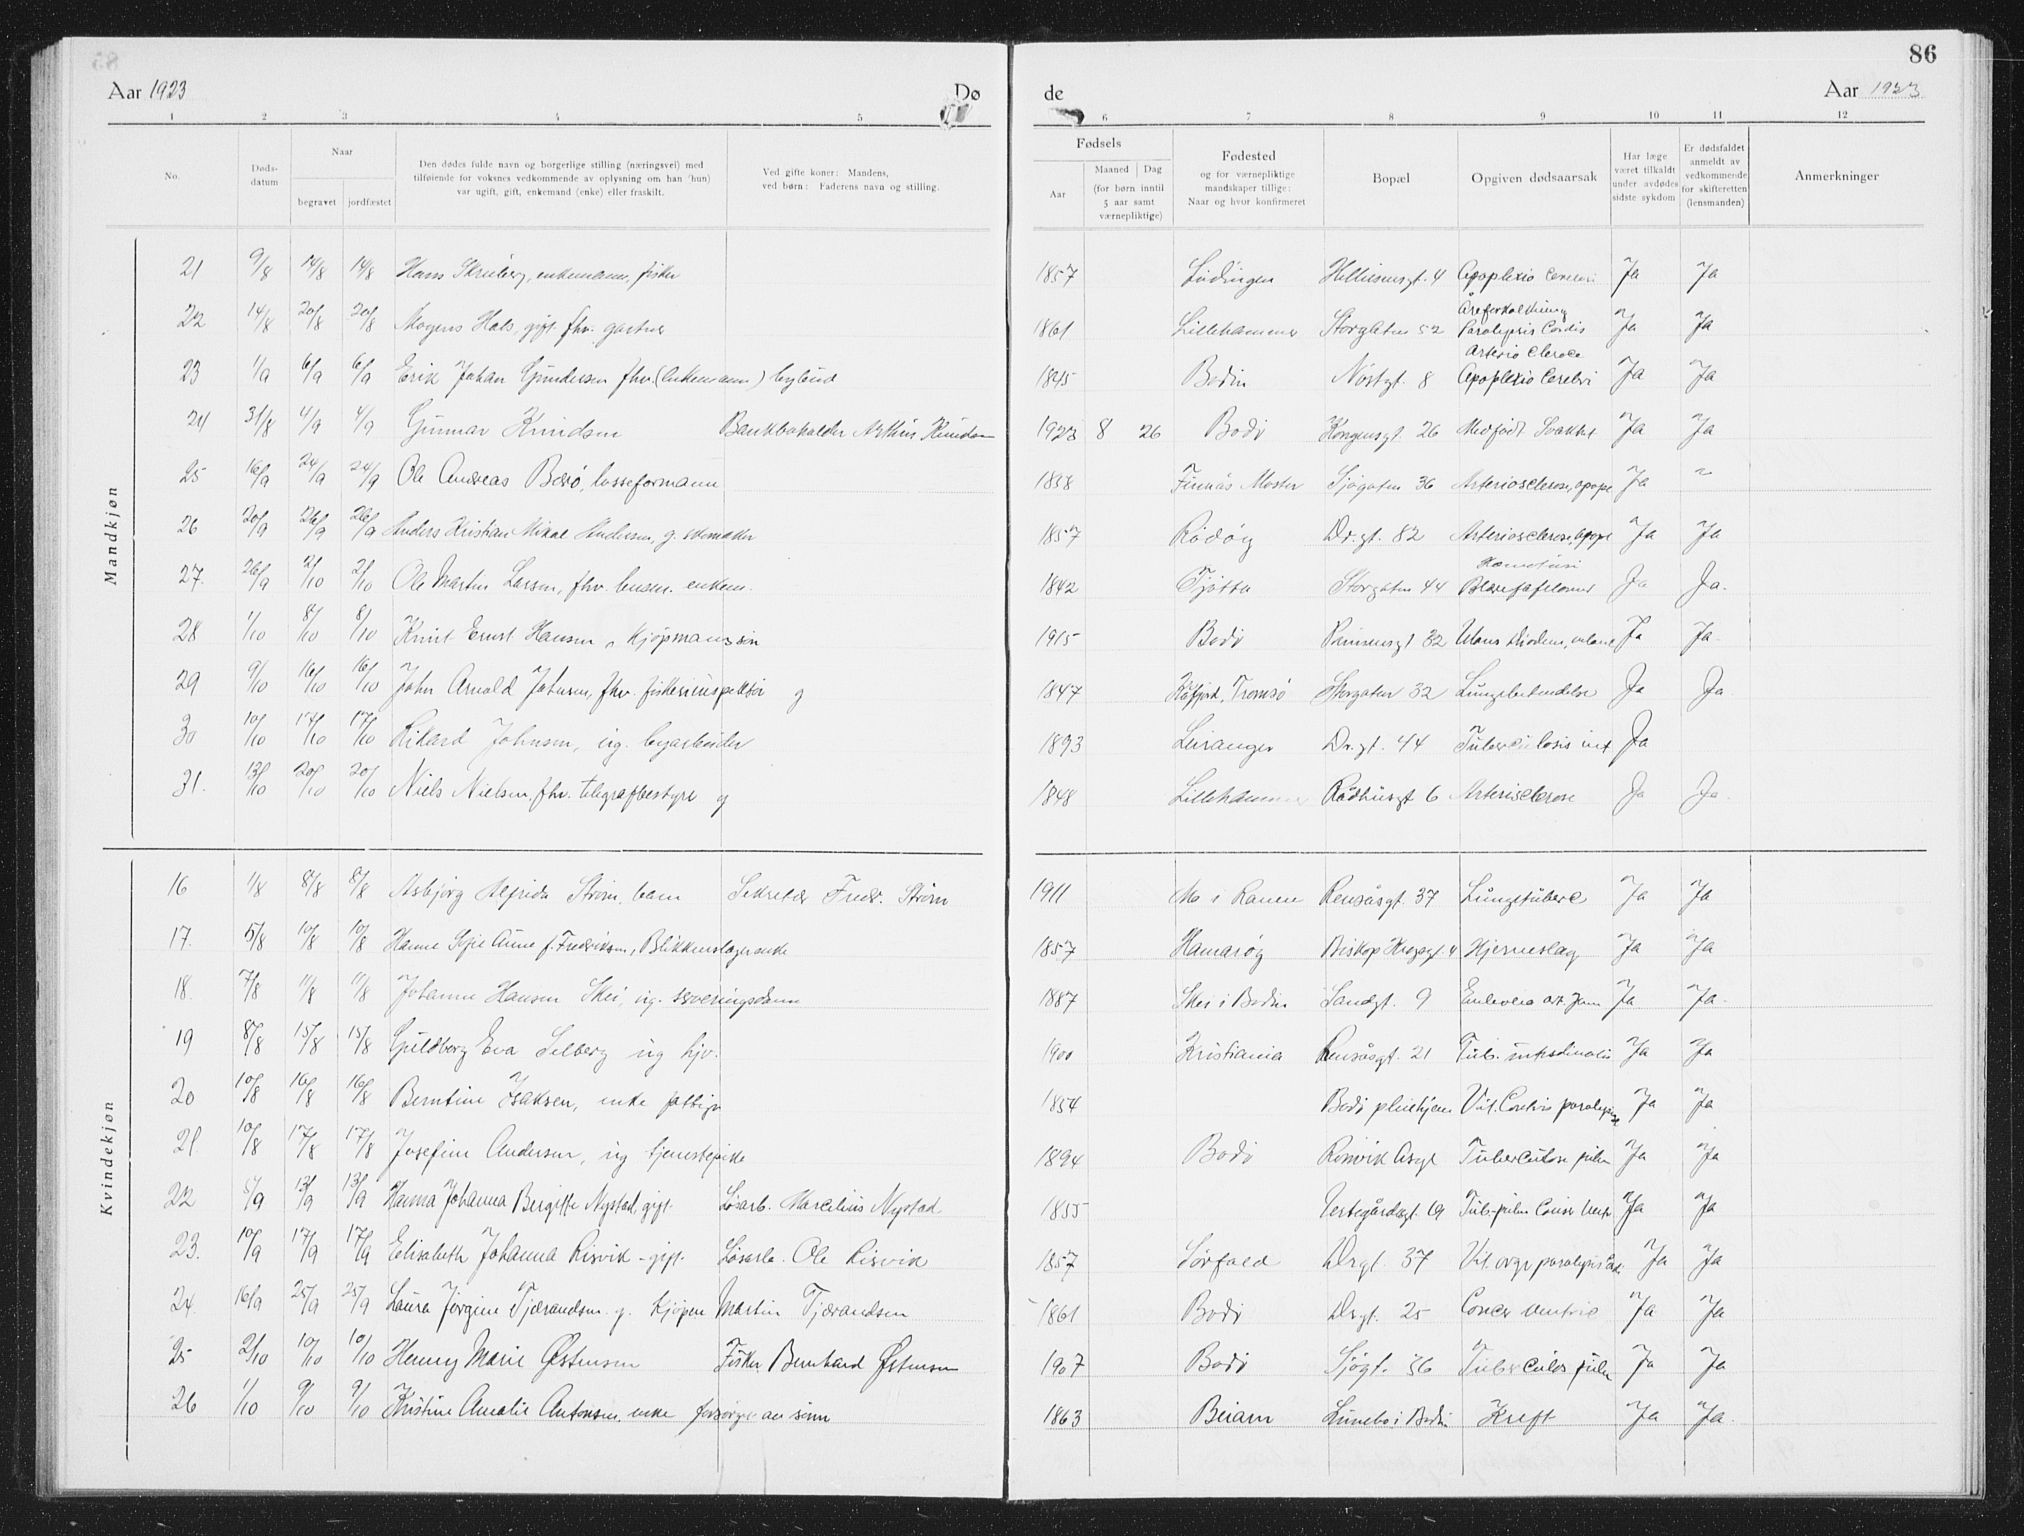 86
Aar 1923 Dø de Aar 1923
1 2 3 4 5 6 7 8 9 10 11 12
No.
Døds-
datum
Naar
begravet jordfæstet
Den dødes fulde navn og borgerlige stilling (næringsvei) med
tilføiende for voksnes vedkommende av oplysning om han (hun)
var ugift, gift, enkemand (enke) eller fraskilt.
Ved gifte koner: Mandens,
ved børn: Faderens navn og stilling.
Fødsels
Aar
Maaned Dag
(for børn inntil
5 aar samt
værnepliktige)
Fødested
og for værnepliktige
mandskaper tillige:
Naar og hvor konfirmeret
Bopæl
Opgiven dødsaarsak
Har læge
været tilkaldt
under avdødes
sidste sykdom
Er dødsfaldet
anmeldt av
vedkommende
for skifteretten
(lensmanden)
Anmerkninger
Mandkjøn
21 9/8 14/8 14/8 Hans enkemann, fisker 1857 Lødingen 4 Apoplexio Cerebri Ja Ja
Åreforkalkning
22 14/8 20/8 20/8 Mogens Hals, gift fhv. gartner 1861 Lillehammer Storgaten 52 Paralysis Cordis Ja Ja
23 1/9 6/9 6/9 Erik Johan Gundersen fhv. (enkemann) bybud 1845 Bodin 8 Apoplexio Cerebri Ja Ja
24 31/8 4/9 4/9 Gunnar Knudsen Bankbokholder 1923 8 26 Bodø Kongensgt. 26 Medfødt Svakhet Ja Ja
25 16/9 24/9 24/9 Ole Andreas lasseformann 1838 Moster Sjøgaten 36 Arteriosclerose, apope Ja
26 20/9 26/9 26/9 Anders Kristian Mikal Andersen, g. skomaker 1857 Rødøy Dr.gt. 82 Arteriosclerose, apope Ja Ja
27. 26/9 2/10 2/10 Ole Martin Larsen, fhv. enkem. 1842 Tjøtta Storgaten 44 Ja Ja.
28 1/10 8/10 8/10 Knut Ernst Hansen, Kjøpmannssøn 1915 Bodø 32 Ulcus Ja Ja
29 9/10 16/10 16/10 John Arnold Johnsen, fhv. fiskeriinspektør g 1847 Tromsø Storgaten 32 Lungebetendelse Ja Ja
30 10/10 17/10 17/10 Rikard Johnsen, ug. byarbeider 1893 Leiranger Dr.gt. 44 Tuberculosis int Ja
31. 13/10 20/10 20/10 Niels Nielsen, fhv. telegrafbestyre g 1848 Lillehammer Rådhusgt 6 Artersclerose Ja Ja.
Kvindekjøn
16 1/8 8/8 8/8 Asbjørg Alfrida Strøm, barn Sekretær Fredr. Strøm 1911 Mo i Ranen Rensåsgt. 37 Lungetuberc Ja Ja
17. 5/8 10/8 10/8 Hanne Anne f. Fredriksen, Blikkenslagerenke 1857 Hamarøy Biskop 4 Hjerneslag Ja Ja
18. 7/8 11/8 11/8 Johanne Hansen Skei, ug. serveringsdame 1887 Skei i Bodin Sandgt. 9 Ja Ja
19 8/8 15/8 15/8 Guldborg Eva Selberg ug hjv. 1900 Kristiania Rensåsgt. 21 Tub. Ja Ja
20 10/8 16/8 16/8 Berntine Isaksen, enke fattig 1854 Bodø pleiehjem Ja Ja
21. 10/8 17/8 17/8 Josefine Andersen, ug tjenestepike 1894 Bodø Rønvik Asyl Tuberculose pulm Ja Ja
22 5/9 13/9 13/9 Hanna Johanna Birgitte Nystad, gift. Løsarb. Marcelius Nystad 1855 19 Ja Ja
23. 10/9 17/9 17/9 Elisabeth Johanna Risvik - gift. Løsarb. Ole Risvik 1857 Sørfold Drgt. 37 Ja Ja
24. 16/9 25/9 25/9 Laura Jørgine Tjærandsen g. Kjøpm Martin Tjærandsen 1861 Bodø Drgt. 25 Cancer ventric Ja Ja
25 2/10 10/10 10/10 Henny Marie Østensen Fisker Bernhard Østensen 1907 Bodø Sjøgt. 36 Tuberculos pulm Ja Ja
26 1/10 9/10 9/10 Kristine Amalie Antonsen, enke forsørges av sønn 1863 Beiarn i Bodin Kreft Ja Ja.